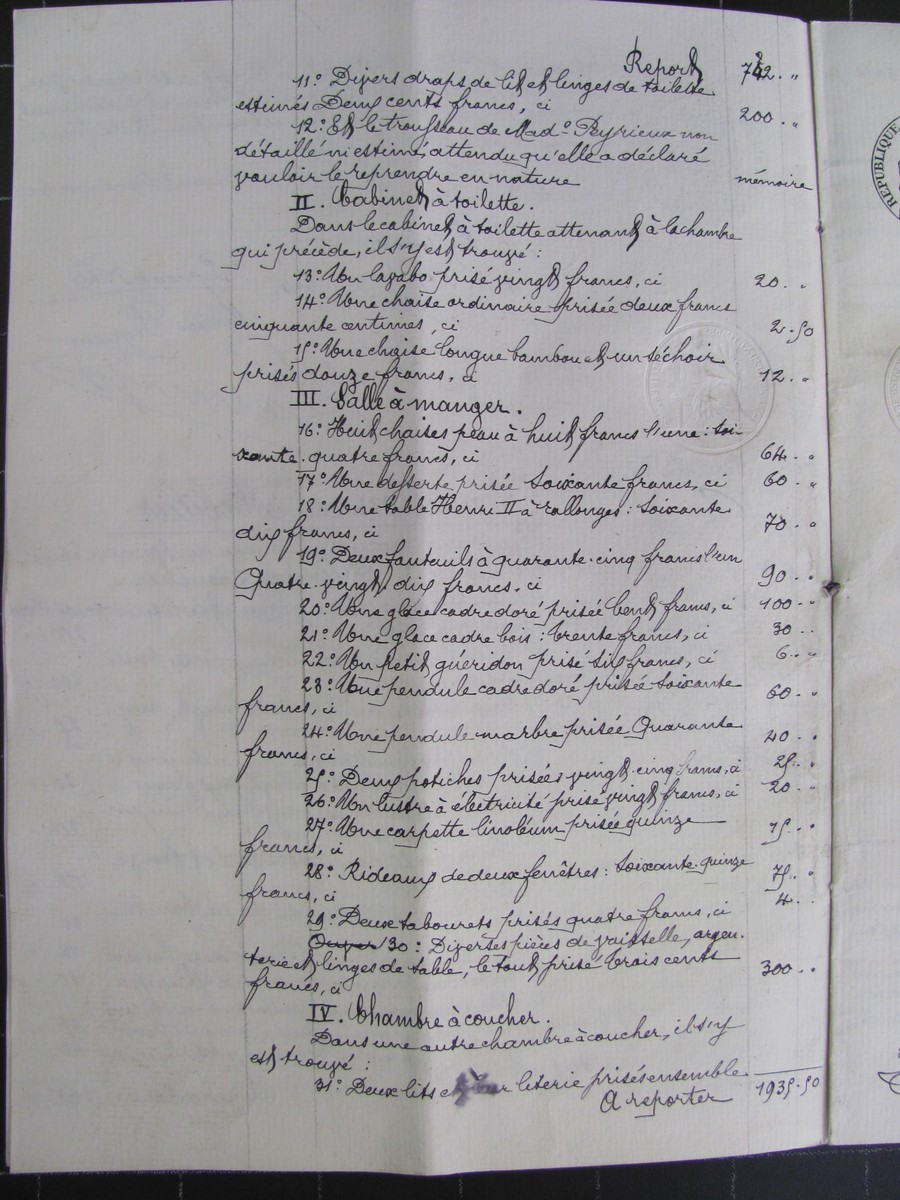 Report 742. "
11° Divers draps de lit et linges de toilette
estimés Deux cents francs, ci 200. "
12° Et le trousseau de Mad° Peyrieux non
détaillé ni estimé, attendu qu'elle a déclaré
vouloir le reprendre en nature mémoire
II. Cabinet à toilette.
Dans le cabinet à toilette attenant à la chambre
qui précède, il s'y est trouvé :
13° Un lavabo prisé vingt francs, ci 20. "
14° Une chaise ordinaire prisée deux francs
cinquante centimes, ci 2.50
15° Une chaise longue bambou et un séchoir
prisés douze francs, ci 12. "
III. Salle à manger.
16° Huit chaises peau à huit francs l'une : soi-
xante-quatre francs, ci 64. "
17° Une desserte prisée soixante francs, ci 60. "
18° Une table Henri II à rallonges : soixante
dix francs, ci 70. "
19° Deux fauteuils à quarante-cinq francs l'un
Quatre-vingt dix francs, ci 90. "
20° Une glace cadre doré prisée Cent francs, ci 100. "
21° Une glace cadre bois : Trente francs, ci 30. "
22° Un petit guéridon prisé six francs, ci 6. "
23° Une pendule cadre doré prisée soixante
francs, ci 60. "
24° Une pendule marbre prisée Quarante
francs, ci 40. "
25° Deux potiches prisées vingt-cinq francs, ci 25. "
26° Un lustre à électricité prisé vingt francs, ci 20. "
27° Une carpette linoléum prisée quinze
francs, ci 15. "
28° Rideaux de deux fenêtres : soixante-quinze
francs, ci 75. "
29° Deux tabourets prisés quatre francs, ci 4. "
30° : Diverses pièces de vaisselle, argen-
terie et linges de table, le tout prisé trois cents
francs, ci 300. "
IV. Chambre à coucher.
Dans une autre chambre à coucher, il s'y
est trouvé :
31° Deux lits et leur literie prisés ensemble
A reporter 1935.50
RÉPUBLIQUE